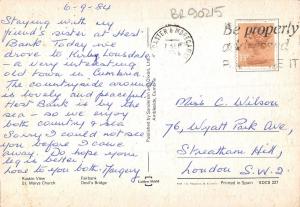 6-9-84
BR90215
Staying with my
friend's sister at Hest
Bank. Today we
drove to Kirby Lonsdale
- a very interesting
old town in Cumbria.
The countryside around
is lovely and peaceful.
Hest Bank is by the
sea - so we enjoy
both country & sea
Sorry I could not see
you before I came
away. Do hope your
leg is better.
love to you both. Margery
Ruskin View
St. Marys Church
Fairbank
Devil's Bridge
Be properly
Miss C. Wilson
76, Wyatt Park Ave,
Streatham Hill,
London S.W.2
Printed in Spain
KDCS 227